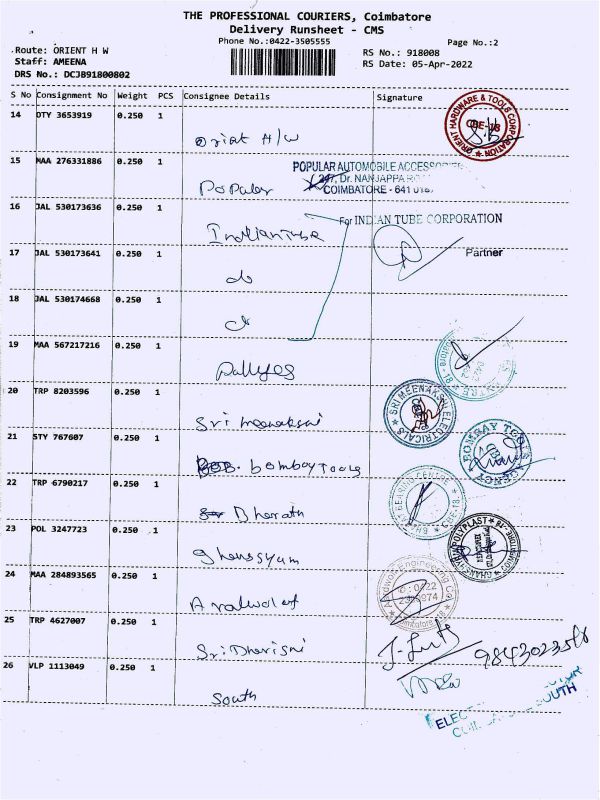 THE PROFESSIONAL COURIERS, Coimbatore
Delivery Runsheet - CMS
Phone No.:0422-3505555
Page No.:2
Route: ORIENT H W
RS No.: 918008
Staff: AMEENA
RS Date: 05-Apr-2022
DRS No.: DCJB91800802
S No Consignment No Weight PCS Consignee Details Signature
14 DTY 3653919 0.250 1
ORIENT HARDWARE & TOOLS CORPORATION
CBE-18
H/W
15 MAA 276331886 0.250 1
POPULAR AUTOMOBILE ACCESSORIES
247, Dr. NANJAPPA
COIMBATORE - 641 018
Popular
16 JAL 530173636 0.250 1
For INDIAN TUBE CORPORATION
Indiantube
17 JAL 530173641 0.250 1
Partner
do
18 JAL 530174668 0.250 1
do
19 MAA 567217216 0.250 1
20 TRP 8203596 0.250 1
SRI MEENAKSHI ELECTRICALS
Sri meenakshi
21 STY 767607 0.250 1
BOMBAY TOOLS AGENCY
bombay Tools
22 TRP 6790217 0.250 1
BEARING CENTRE
Bharath
23 POL 3247723 0.250 1
GHANSHYAM POLYPLAST
COIMBATORE-18
24 MAA 284893565 0.250 1
Engineering Co.
0422
Coimbatore
25 TRP 4627007 0.250 1
26 VLP 1113049 0.250 1
South